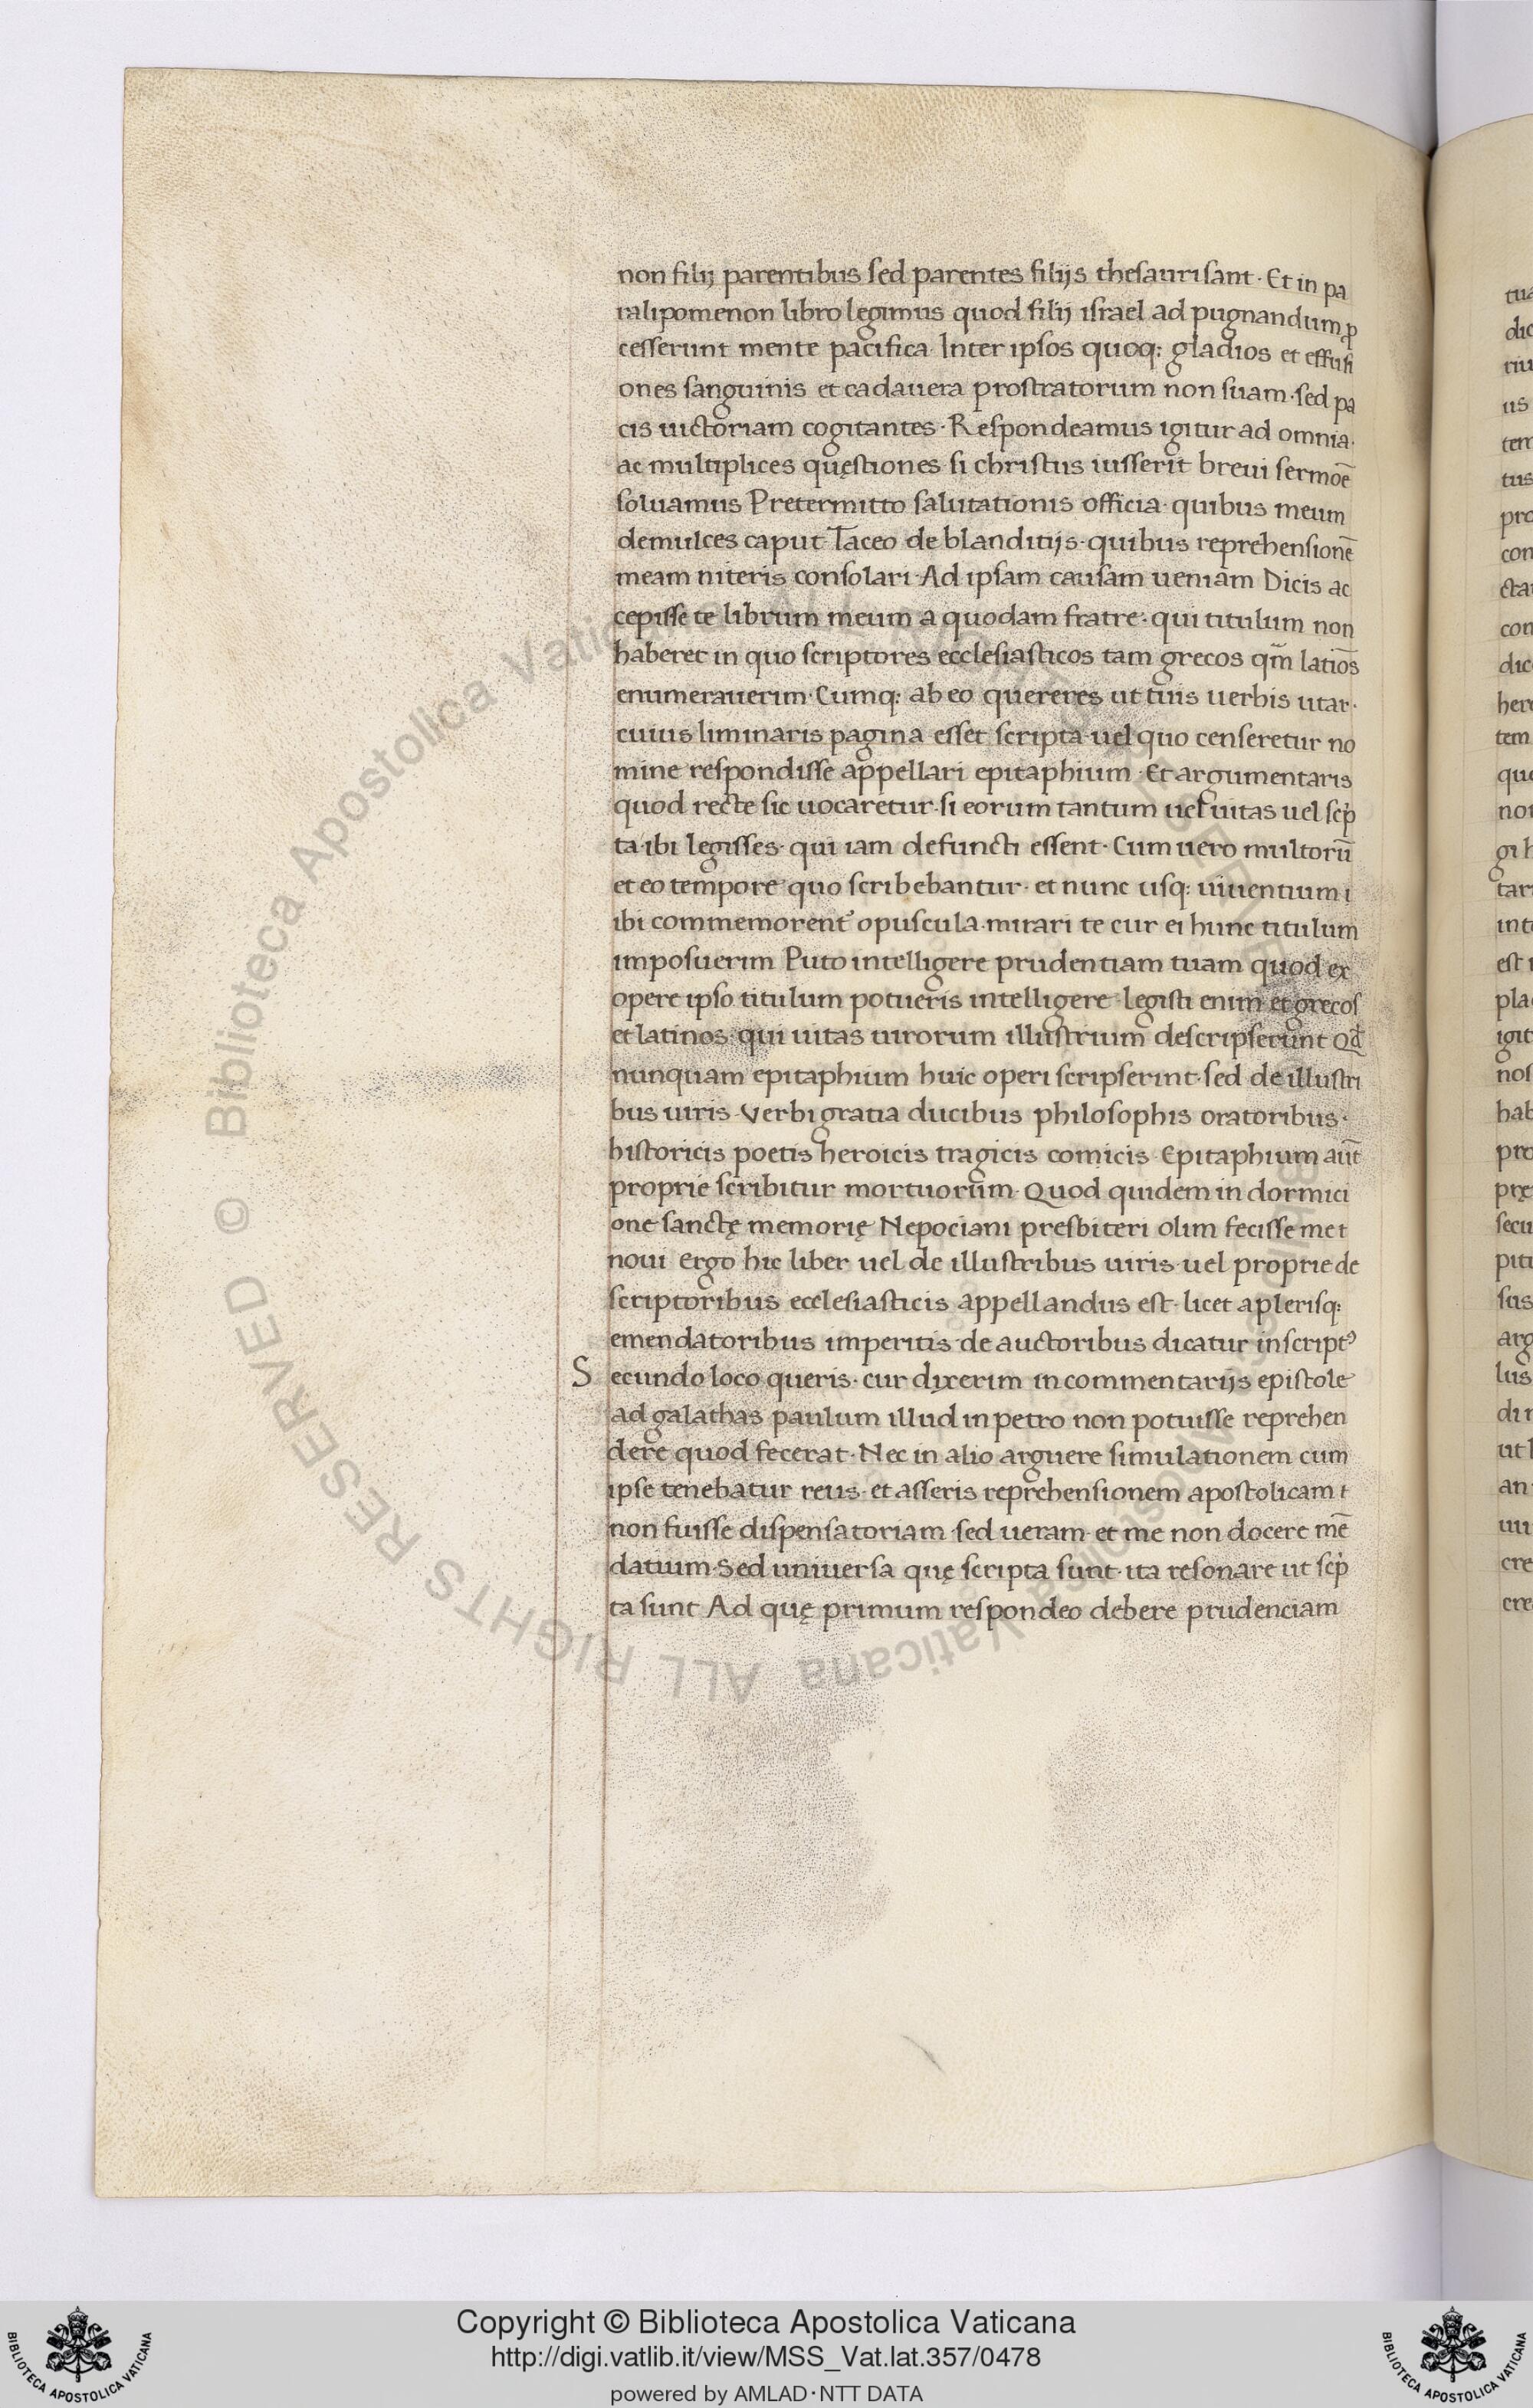 non filij parentibus sed parentes filijs thesaurisant · Et in pa
ralipomenon libro legimus quod filij israel ad pugnandum ꝓ
cesserunt mente pacifica · Inter ipsos quoq; gladios et effusi
ones sanguinis et cadauera prostratorum non suam · sed pa
cis uictoriam cogitantes · Respondeamus igitur ad omnia ·
ac multiplices quęstiones si christus iusserit breui sermoē
soluamus Pretermitto salutationis officia · quibus meum
demulces caput Taceo de blanditijs · quibus reprehensionē
meam niteris consolari · Ad ipsam causam ueniam Dicis ac
cepisse te librum meum a quodam fratre · qui titulum non
haberet in quo scriptores ecclesiasticos tam grecos qm̄ latiōs
enumerauerim · Cumq; ab eo quereres ut tuis uerbis utar ·
cuius liminaris pagina esset scripta uel quo censeretur no
mine respondisse appellari epitaphium · Et argumentaris
quod recte sic uocaretur · si eorum tantum uel uitas uel sc̓p
ta ibi legisses · qui iam defuncti essent · Cum uero multorū
et eo tempore quo scribebantur · et nunc usq; uiuentium i
ibi commemorent᷑ opuscula · mirari te cur ei hunc titulum
imposuerim Puto intelligere prudentiam tuam quod ex
opere ipso titulum potueris intelligere · legisti enim et grecos
et latinos · qui uitas uirorum illustrium descripserunt Qd̄
nunquam epitaphium huic operi scripserint · sed de illustri
bus uiris · Verbi gratia ducibus philosophis oratoribus ·
historicis poetis heroicis tragicis comicis · Epitaphium aūt
proprie scribitur mortuorum · Quod quidem in dormici
one sanctę memorię Nepociani presbiteri olim fecisse me t
noui ergo hic liber uel de illustribus uiris · uel proprie de
scriptoribus ecclesiasticis appellandus est · licet a plerisq;
emendatoribus imperitis de auctoribus dicatur inscriptꝰ
Secundo loco queris · cur dixerim in commentarijs epistole
ad galathas paulum illud in petro non potuisse reprehen
dere quod fecerat · Nec in alio arguere simulationem cum
ipse tenebatur reus · et asseris reprehensionem apostolicam t
non fuisse dispensatoriam · sed ueram · et me non docere mē
datium · Sed uniuersa quę scripta sunt · ita resonare ut sc̓p
ta sunt Ad quę primum respondeo debere prudenciam
© Biblioteca Apostolica Vaticana ALL RIGHTS RESERVED
Copyright © Biblioteca Apostolica Vaticana
http://digi.vatlib.it/view/MSS_Vat.lat.357/0478
powered by AMLAD·NTT DATA
BIBLIOTECA APOSTOLICA VATICANA
BIBLIOTECA APOSTOLICA VATICANA